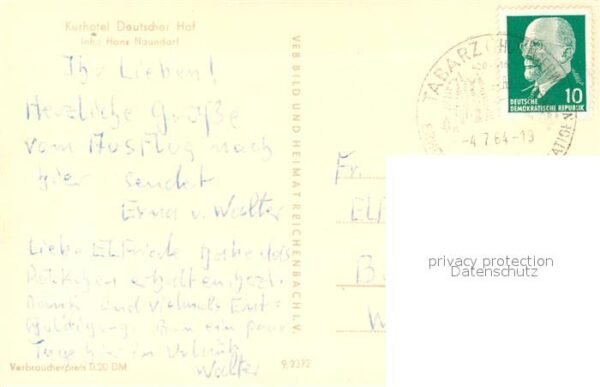 Kurhotel Deutscher Hof
Inh.: Hans Naundorf
Ihr Lieben!
Herzliche Grüße
vom Ausflug nach
hier sendet
Erna u. Walter
Liebe Elfriede habe das
Päckchen erhalten, herzl.
Dank und vielmals Ent-
schuldigung. Bin ein paar
Tage hier in Urlaub.
Walter
Verbraucherpreis 0.20 DM
VEB BILD UND HEIMAT REICHENBACH I. V.
9/2372
TABARZ
-4.7.64-19
10
DEUTSCHE
DEMOKRATISCHE REPUBLIK
Fr.
privacy protection
Datenschutz